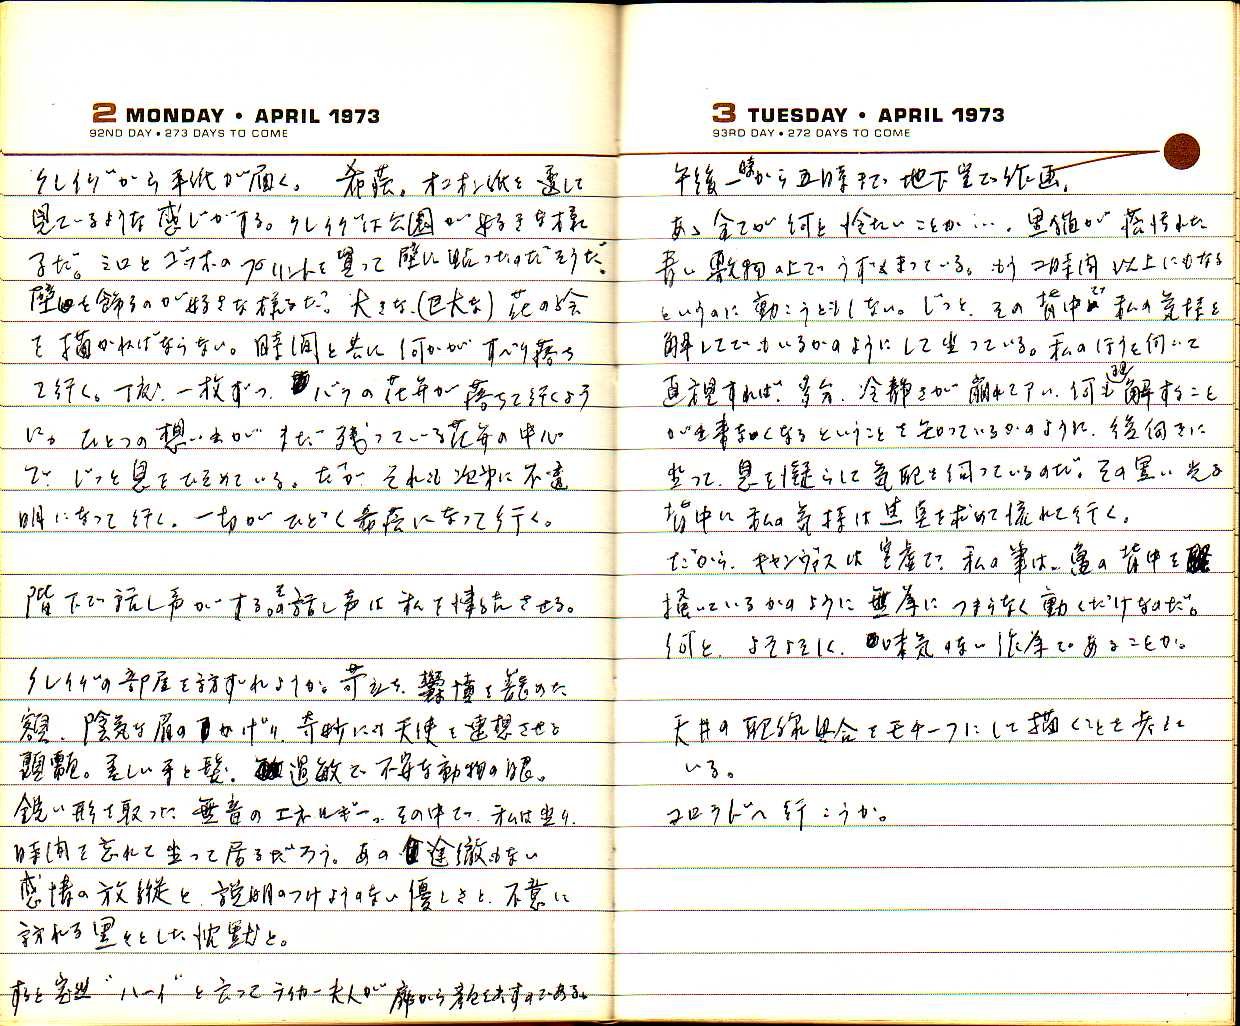 2 MONDAY • APRIL 1973
92ND DAY • 273 DAYS TO COME
クレイグから手紙が届く。 希薄。オニオン紙を透して
見ているような感じがする。クレイグは公園が好きな様
子だ。ミロとゴッホのプリントを買って壁に貼ったのだそうだ。
壁を飾るのが好きな様子だ。大きな(巨大な)花の絵
を描かねばならない。時間と共に何かがすべり落ち
て行く。丁度、一枚ずつ、バラの花弁が落ちて行くよう
に。ひとつの想い出がまだ残っている花弁の中心
で じっと息をひそめている。だが それも次第に不透
明になって行く。一切がひどく希薄になって行く。
階下で話し声がする。その話し声は私を
クレイグの部屋を訪ずれようか。苛立ち、鬱憤を
額、陰気な眉のかげり、奇妙にも天使を連想させる
頭。美しい手と髪、過敏で不安な動物の眼。
鋭い形を取った無音のエネルギー。その中で、私は坐り、
時間を忘れて坐って居るだろう。あの途徹もない
感情の放縦と、説明のつけようのない優しさと、不意に
訪れる黒々とした沈黙と。
すると突然“ハーイ”と云って ライカー夫人が扉から顔を出すのである。
3 TUESDAY • APRIL 1973
93RD DAY • 272 DAYS TO COME
午後一時から五時まで地下室で作画。
あゝ全てが何と冷たいことか…。黒猫が薄汚れた
青い敷物の上でうずくまっている。もう2時間以上にもなる
というのに動こうともしない。じっと、その背中で私の気持を
解してでもいるかのようにして坐っている。私のほうを向いて
直視すれば、多分、冷静さが崩れて了い、何も理解すること
が出来なくなるということを知っているかのように、後向きに
坐って、息を凝らして気配を伺っているのだ。その黒い光る
背中に私の気持は出臭を求めて流れて行く。
だから、キャンヴァスは空虚で、私の筆は、亀の背中を
掻いているかのように無為につまらなく動くだけなのだ。
何と、よそよそしく、味気のない作為であることか。
天井の配線具合をモチーフにして描くことを考えて
いる。
コロラドへ行こうか。